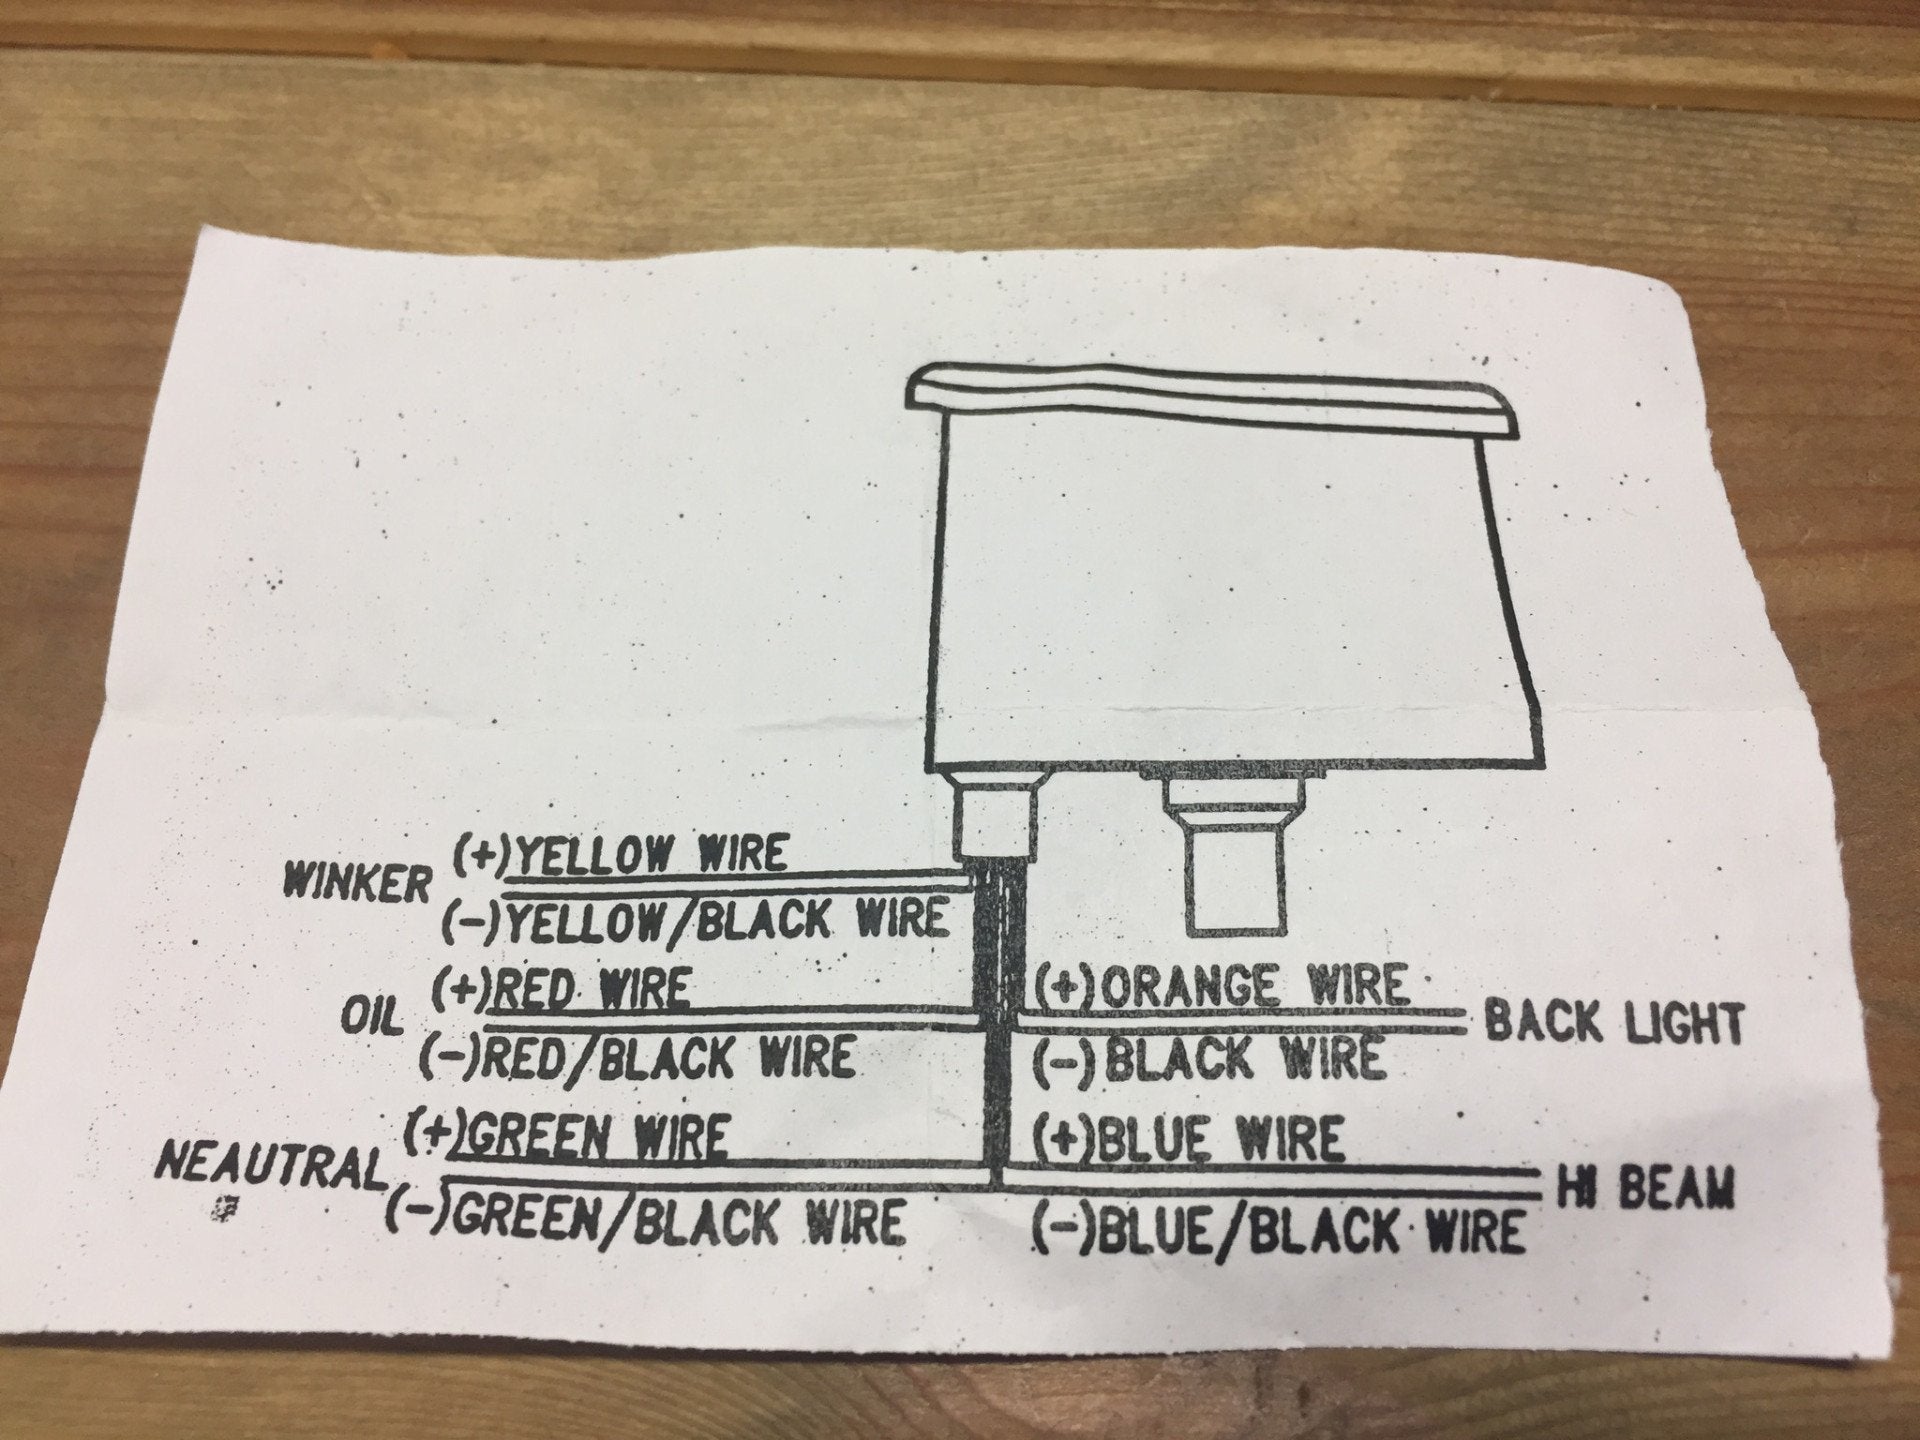 WINKER
(+)YELLOW WIRE
(-)YELLOW/BLACK WIRE
OIL
(+)RED WIRE
(-)RED/BLACK WIRE
NEAUTRAL
(+)GREEN WIRE
(-)GREEN/BLACK WIRE
(+)ORANGE WIRE
(-)BLACK WIRE
BACK LIGHT
(+)BLUE WIRE
(-)BLUE/BLACK WIRE
HI BEAM